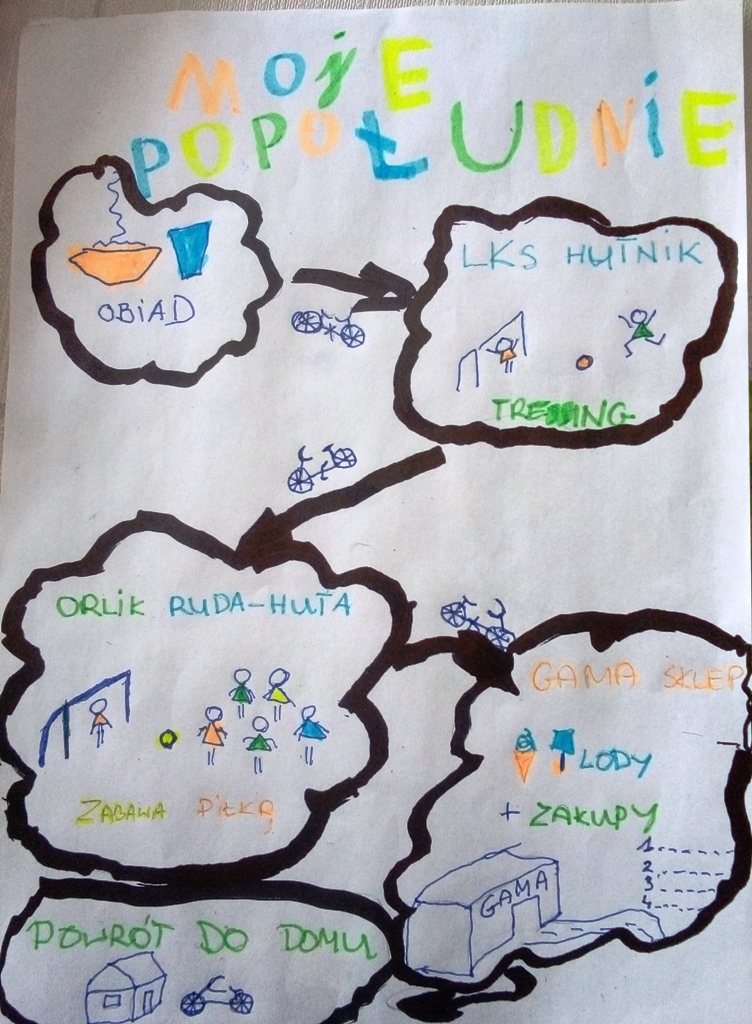 MOJE
POPOŁUDNIE
OBIAD
LKS HUTNIK
TRENING
ORLIK RUDA-HUTA
ZABAWA PIŁKĄ
GAMA SKLEP
LODY
+ ZAKUPY
1.
2
3
4.
GAMA
POWRÓT DO DOMU